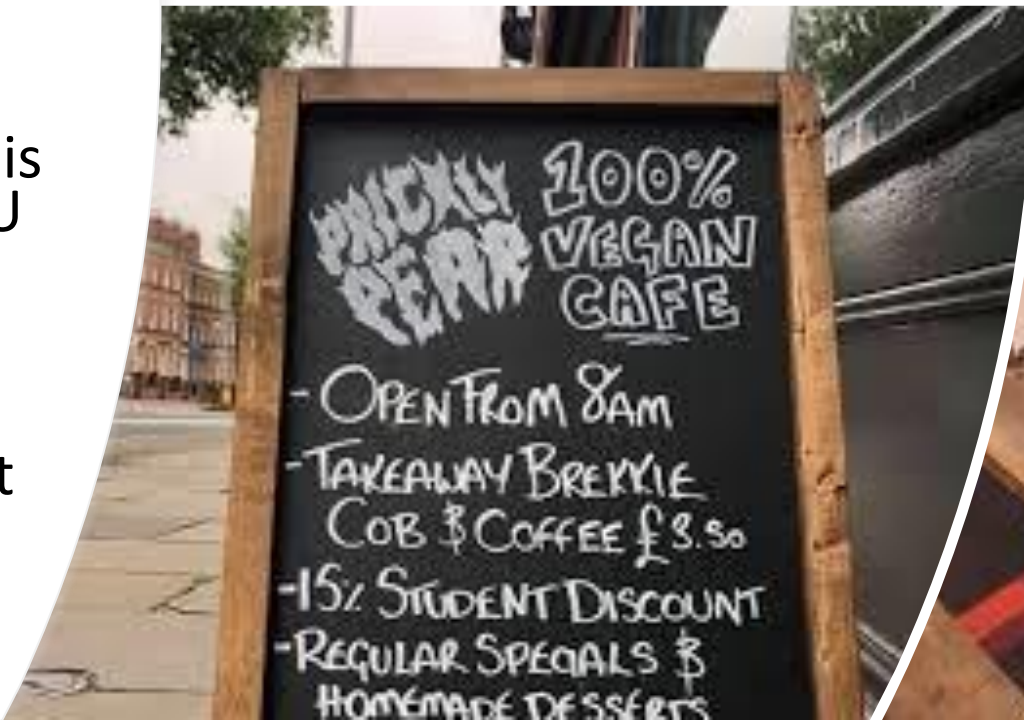 is
U
t
PRICKLY
PEAR
100%
VEGAN
CAFE
- OPEN FROM 8AM
- TAKEAWAY BREKKIE
COB & COFFEE £3.50
- 15% STUDENT DISCOUNT
- REGULAR SPECIALS &
HOMEMADE DESSERTS